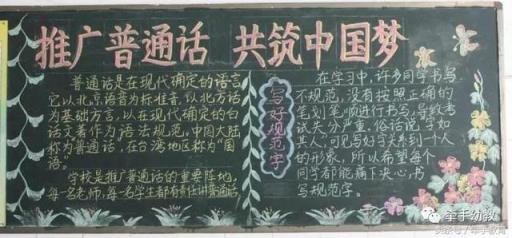 推广普通话 共筑中国梦
普通话是在现代确定的语言
它以北京语音为标准音,以北方话
为基础方言,以在现代确定的白
话文著作为语法规范,中国大陆
称为普通话,在台湾地区称为"国
语。"
学校是推广普通话的重要阵地,
每一名老师,每一名学生都有责任讲普通话
写好规范字
在学习中,许多同学书写
不规范,没有按照正确的
笔划笔顺进行书写,导致考
试失分严重。俗话说字如
其人,可见写好字关系到一个人
的形象,所以希望每个
同学都能痛下决心,书
写规范字。
牵手幼教
头条号/牵手教育